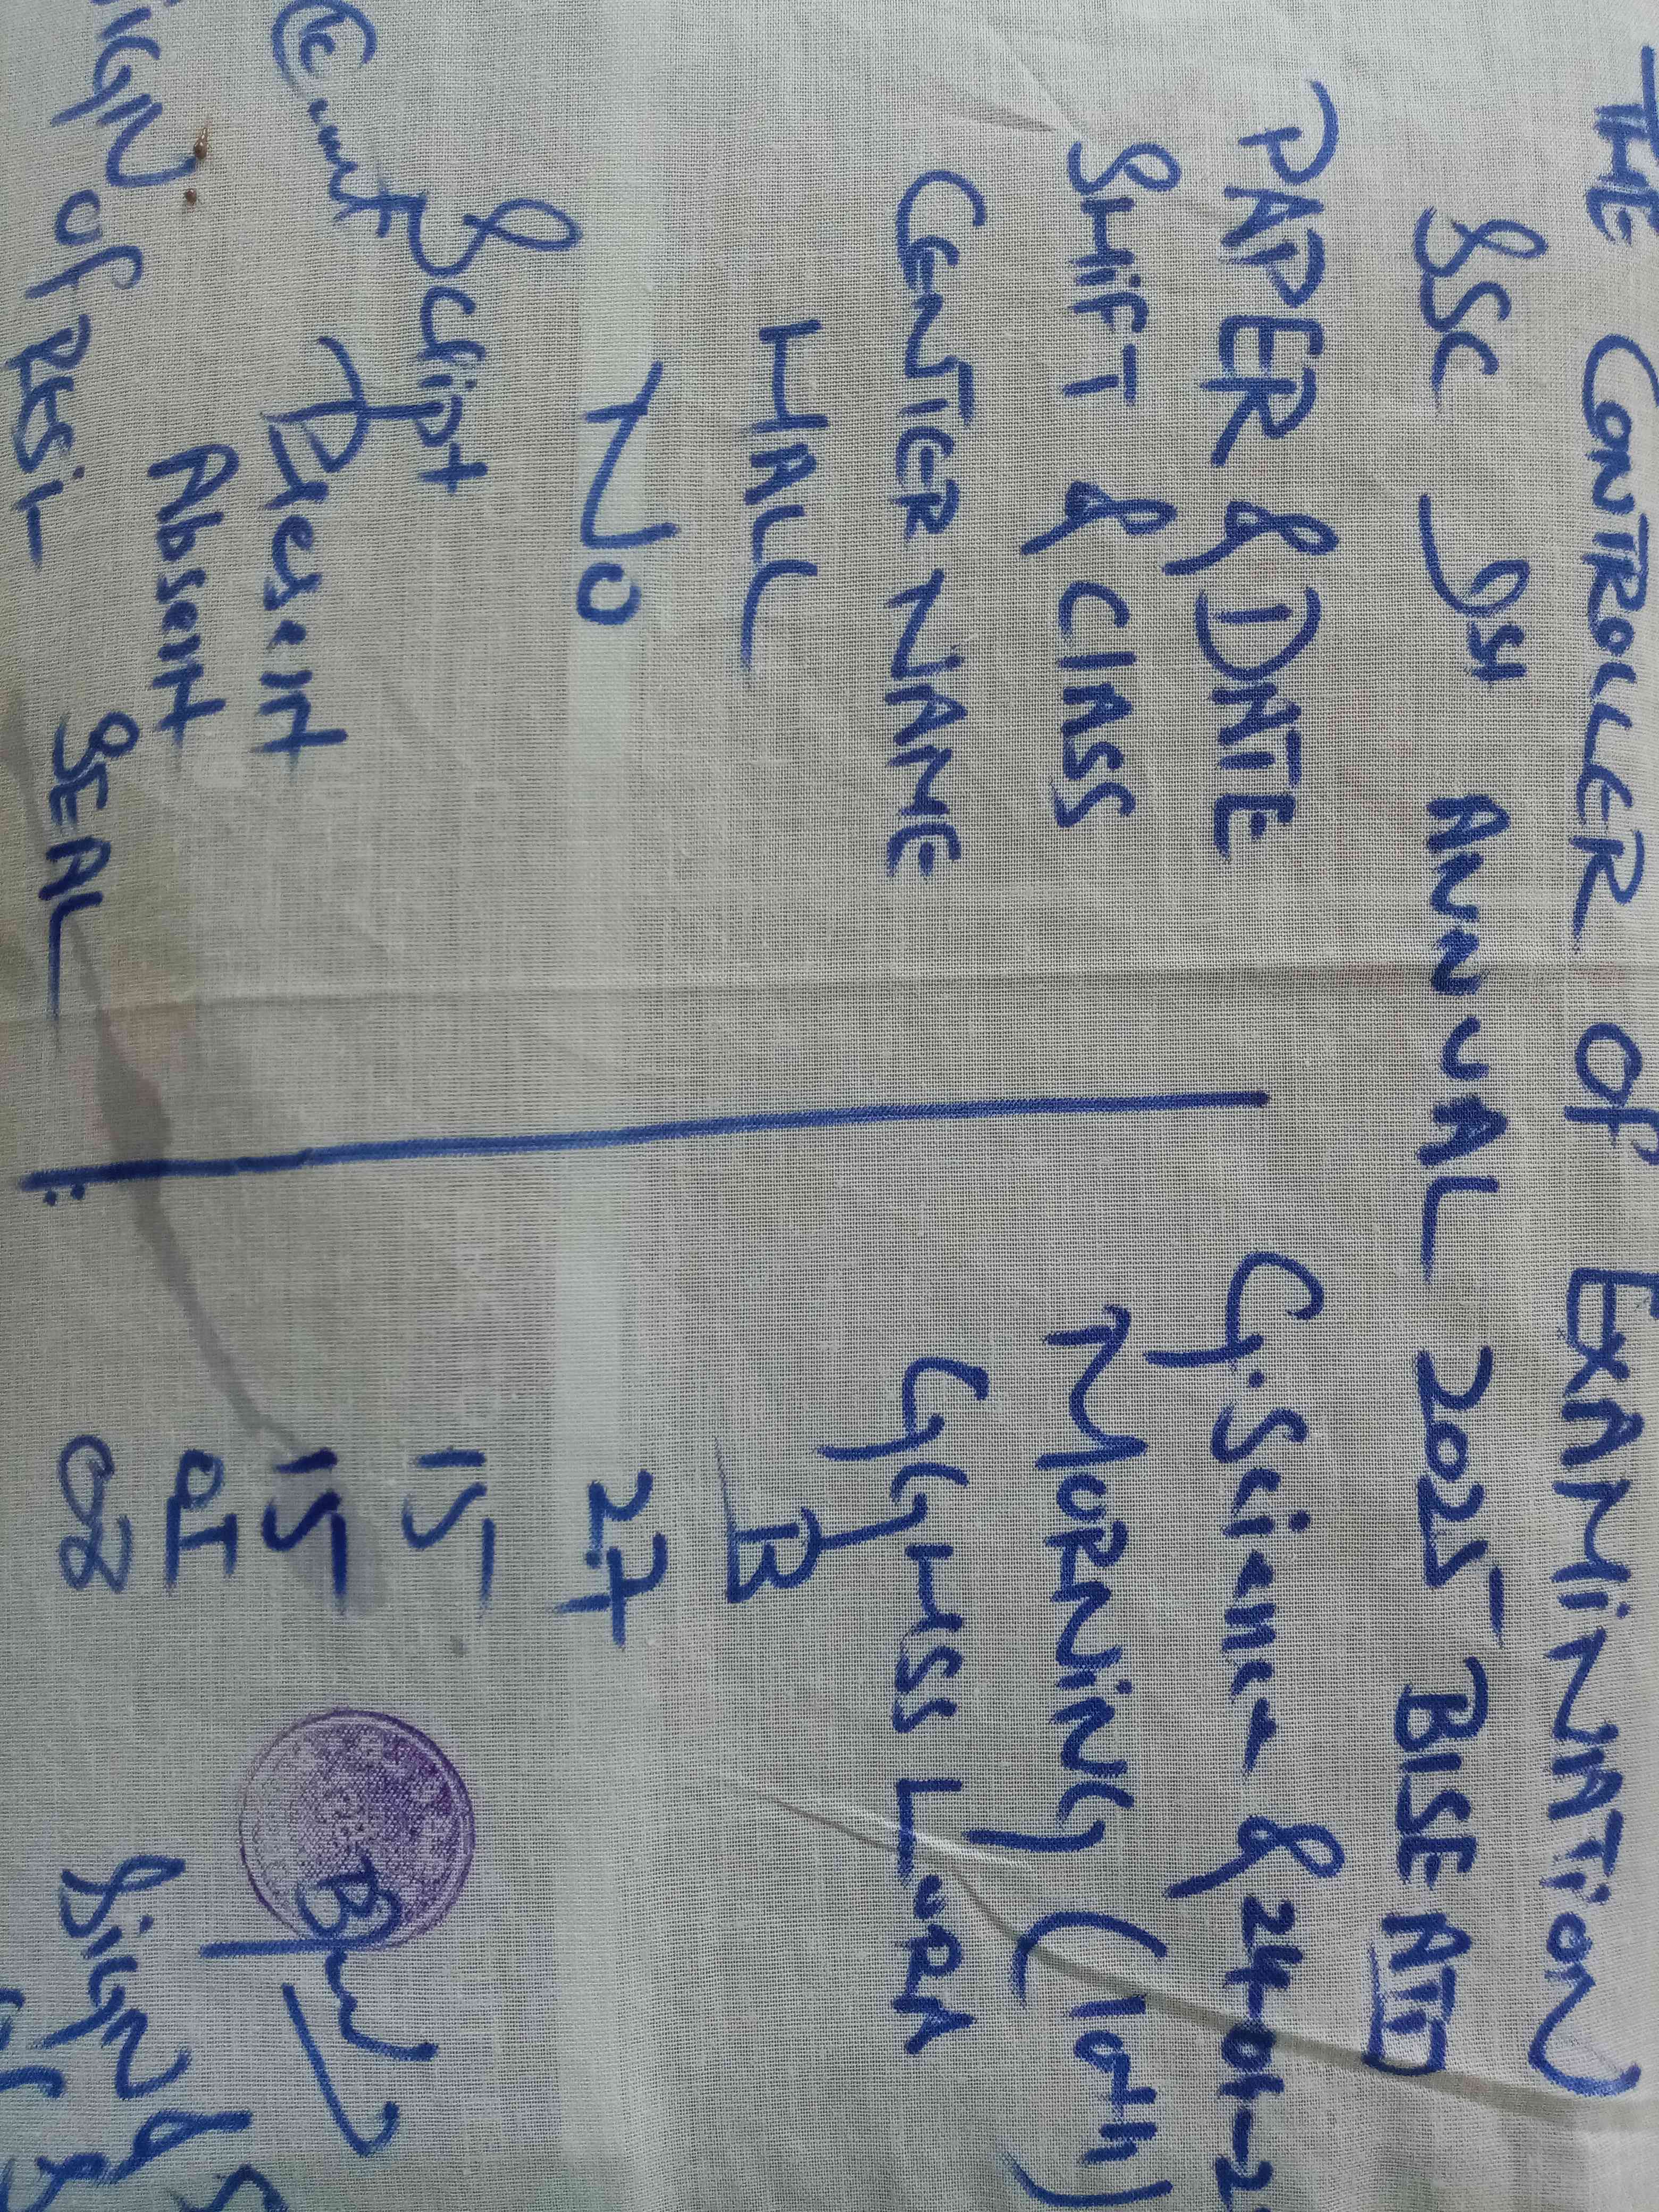 THE CONTROLLER OF EXAMINATION
SSC Ist ANNUAL 2025 BISE ATD
PAPER & DATE G. Science & 24-01-2
SHIFT & CLASS MORNING (10th)
CENTER NAME GGHSS LORA
HALL B
No 27
Script 15
Present 15
Absent 01
SEAL 02
SIGN of RSI
SIGN